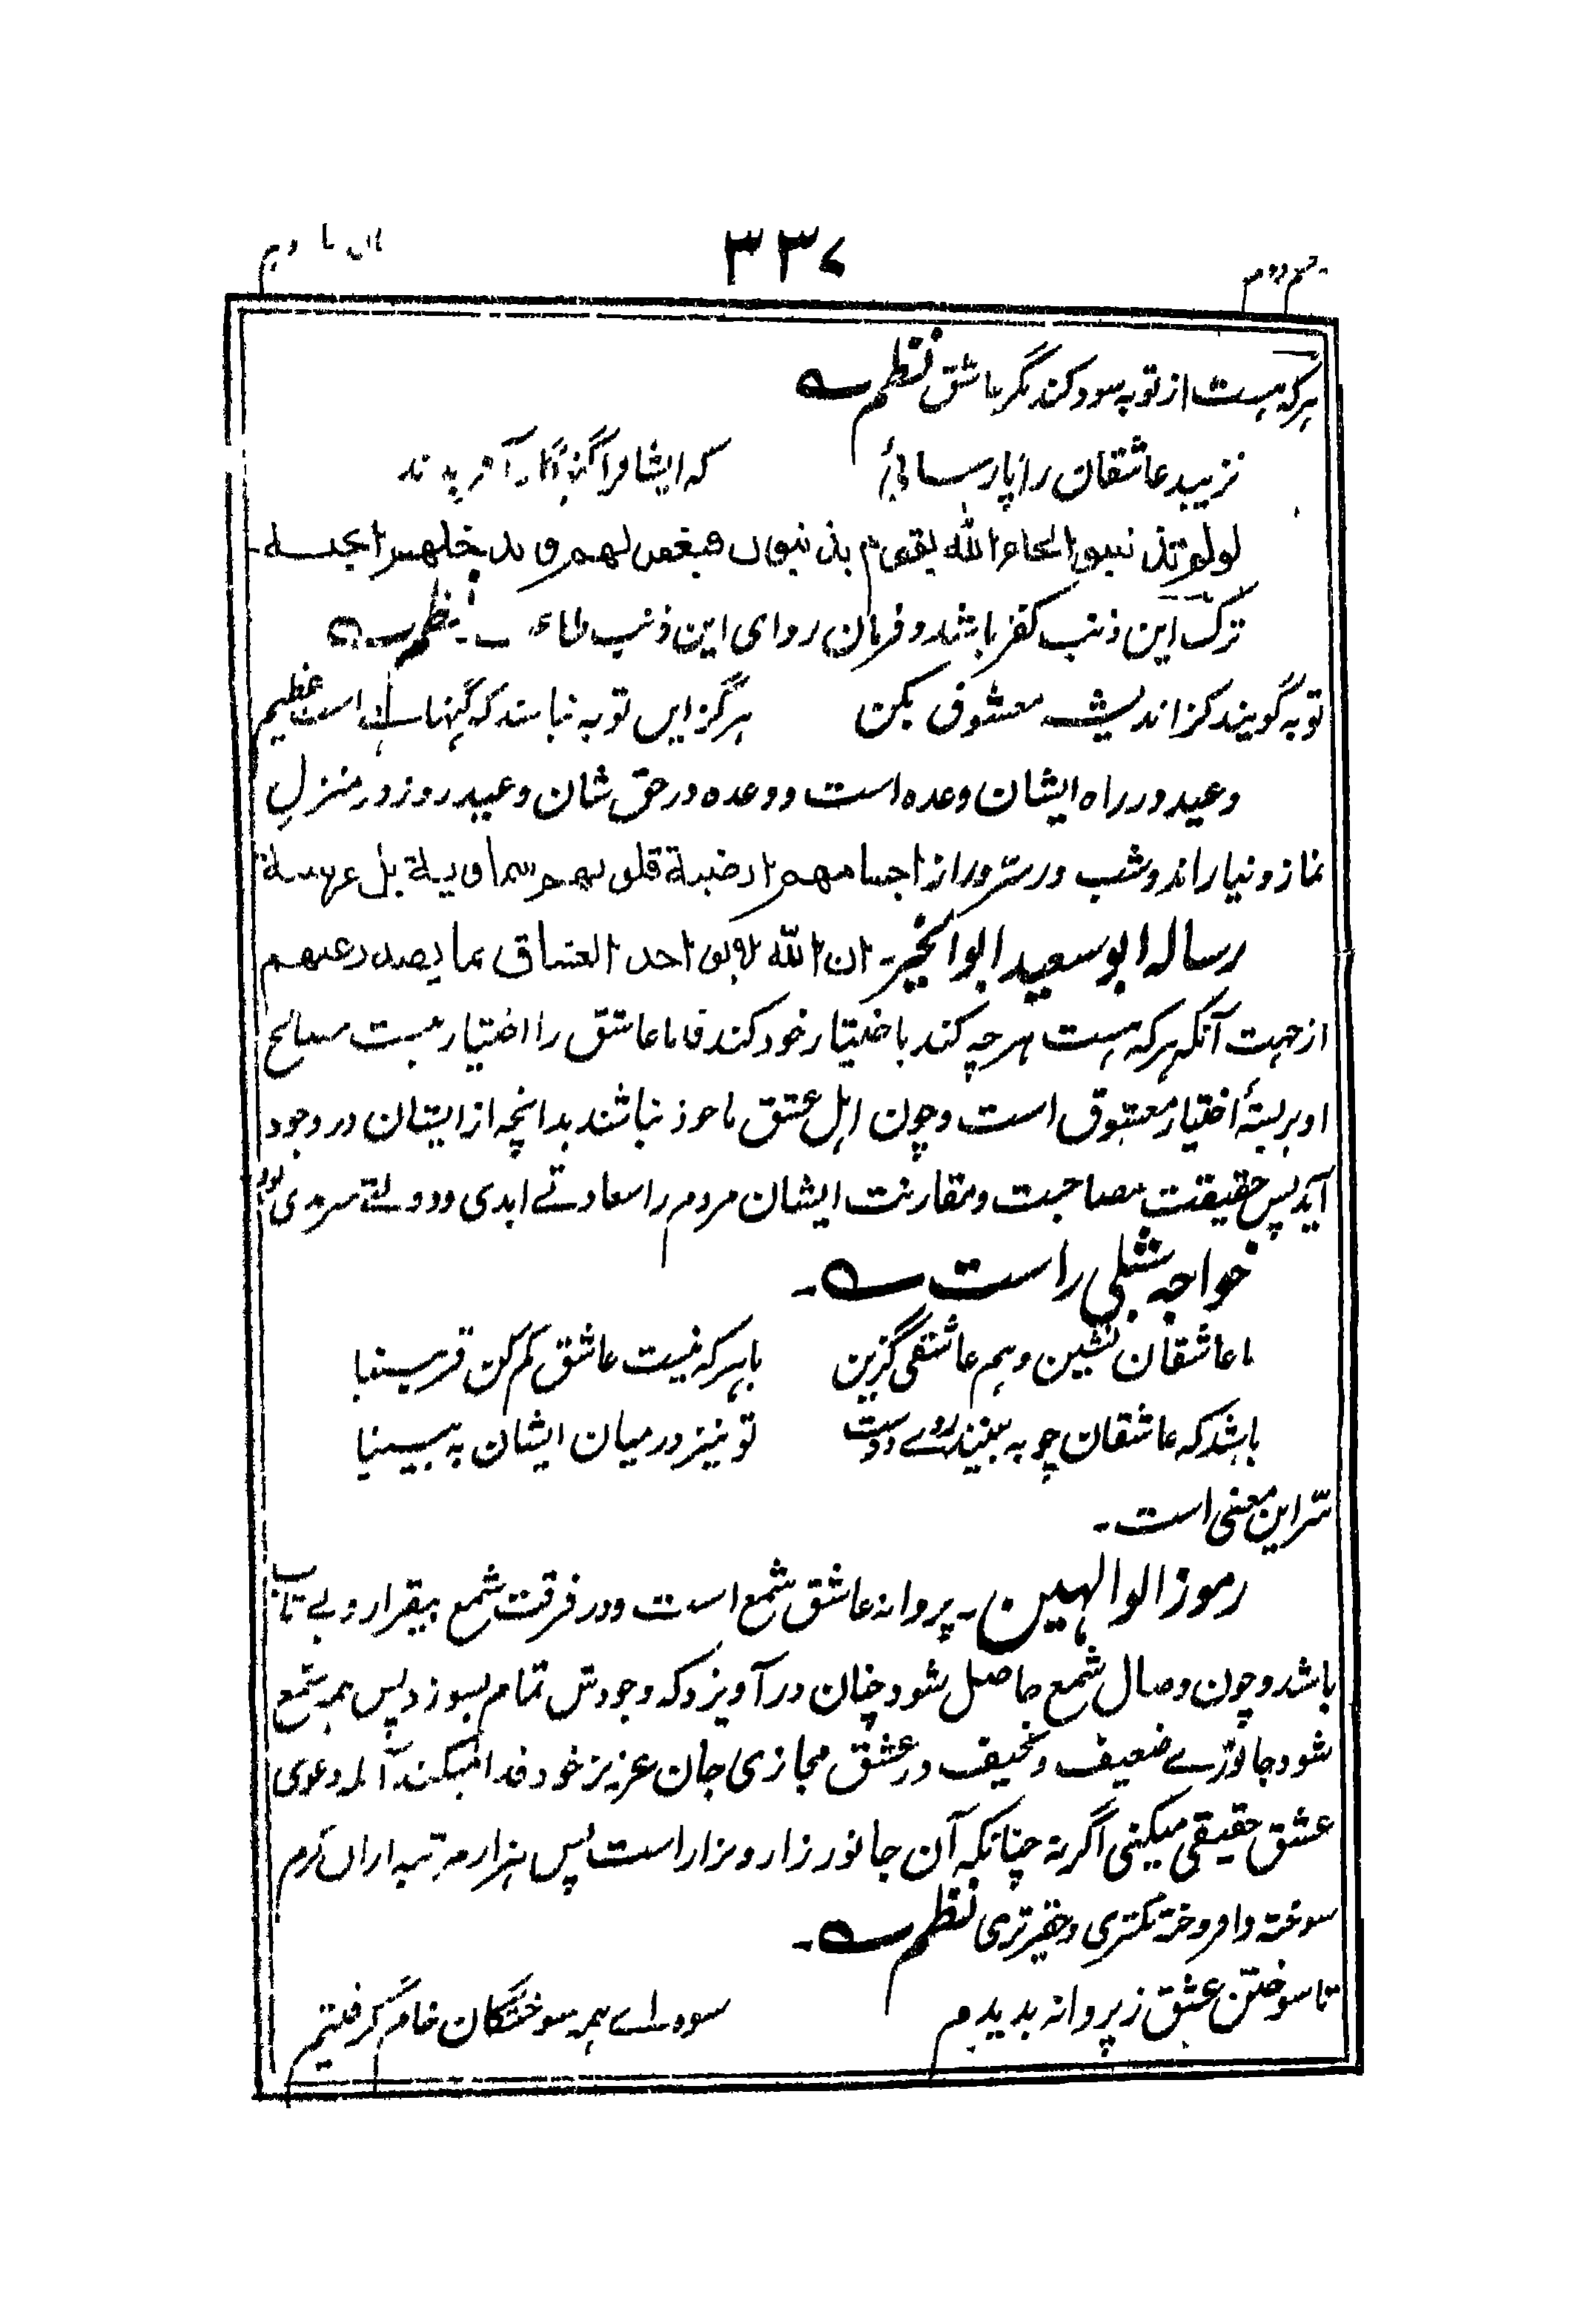 ۳۳۷
ہرکہ ہست از توبہ سود کند مگر عاشق نظم
نزیبد عاشقان را پارسائی کہ ایشانرا گنہگار آفریدند
لولم تذنبوا لجاء اللہ بقوم یذنبون فیغفر لهم و یدخلهم الجنة
ترک این ذنب کفر باشد و فرمان روای این ذنب نظم
توبہ گویند کز اندیشہ معشوق بکن ہرگز ایں توبہ نباشد کہ گناہے است عظیم
وعید در راہ ایشان وعدہ است و وعدہ در حق شان وعید روز در منزلِ
نماز و نیاز اند و شب در سرّ و راز اجسامهم ارضیة قلوبهم سماویة بل عرشیة
رسالہ ابو سعید ابو الخیر۔ ان اللہ احد العشاق بما یصدر عنهم
از جہت آنکہ ہرکہ ہست ہر چہ کند باختیار خود کند فاما عاشق را اختیار نیست
او بربستۂ اختیار معشوق است و چون اہل عشق ماخوذ نباشند بدانچہ از ایشان در وجود
آید پس حقیقت مصاحبت و مقارنت ایشان مردم را سعادتے ابدی و دولتے سرمدی بود
خواجہ شبلی راست
با عاشقان نشین و ہم عاشقی گزین باہرکہ نیست عاشق کم کن قرینیا
باشد کہ عاشقان چو بہ بینند روے دوست تو نیز درمیان ایشان بہ بینیا
سّر این معنی است۔
رموز الوالہین۔ پروانہ عاشق شمع است و در فرقت شمع بیقرار و بے تاب
باشد و چون وصال شمع حاصل شود چنان در آویزد کہ وجودش تمام بسوزد پس ہمہ شمع
شود جانورے ضعیف و نحیف در عشق مجازی جان عزیز خود فدا میکند دعوی
عشق حقیقی میکنی اگر نہ چنانکہ آن جانور زار و نزار است پس ہزار مرتبہ ازاں کرم
سوختہ و افروختہ کمتری و حقیر تری نظم
تا سوختن عشق ز پروانہ بدیدیم ہمہ سوختگان خام گرفتیم